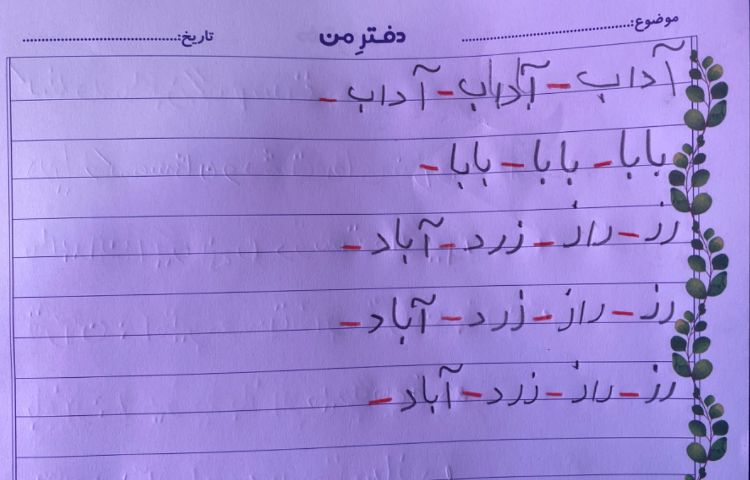 موضوع:
دفترِ من
تاریخ:
آداب - آداب - آداب -
بابا - بابا - بابا -
رز - راز - زرد - آباد -
رز - راز - زرد - آباد -
رز - راز - زرد - آباد -